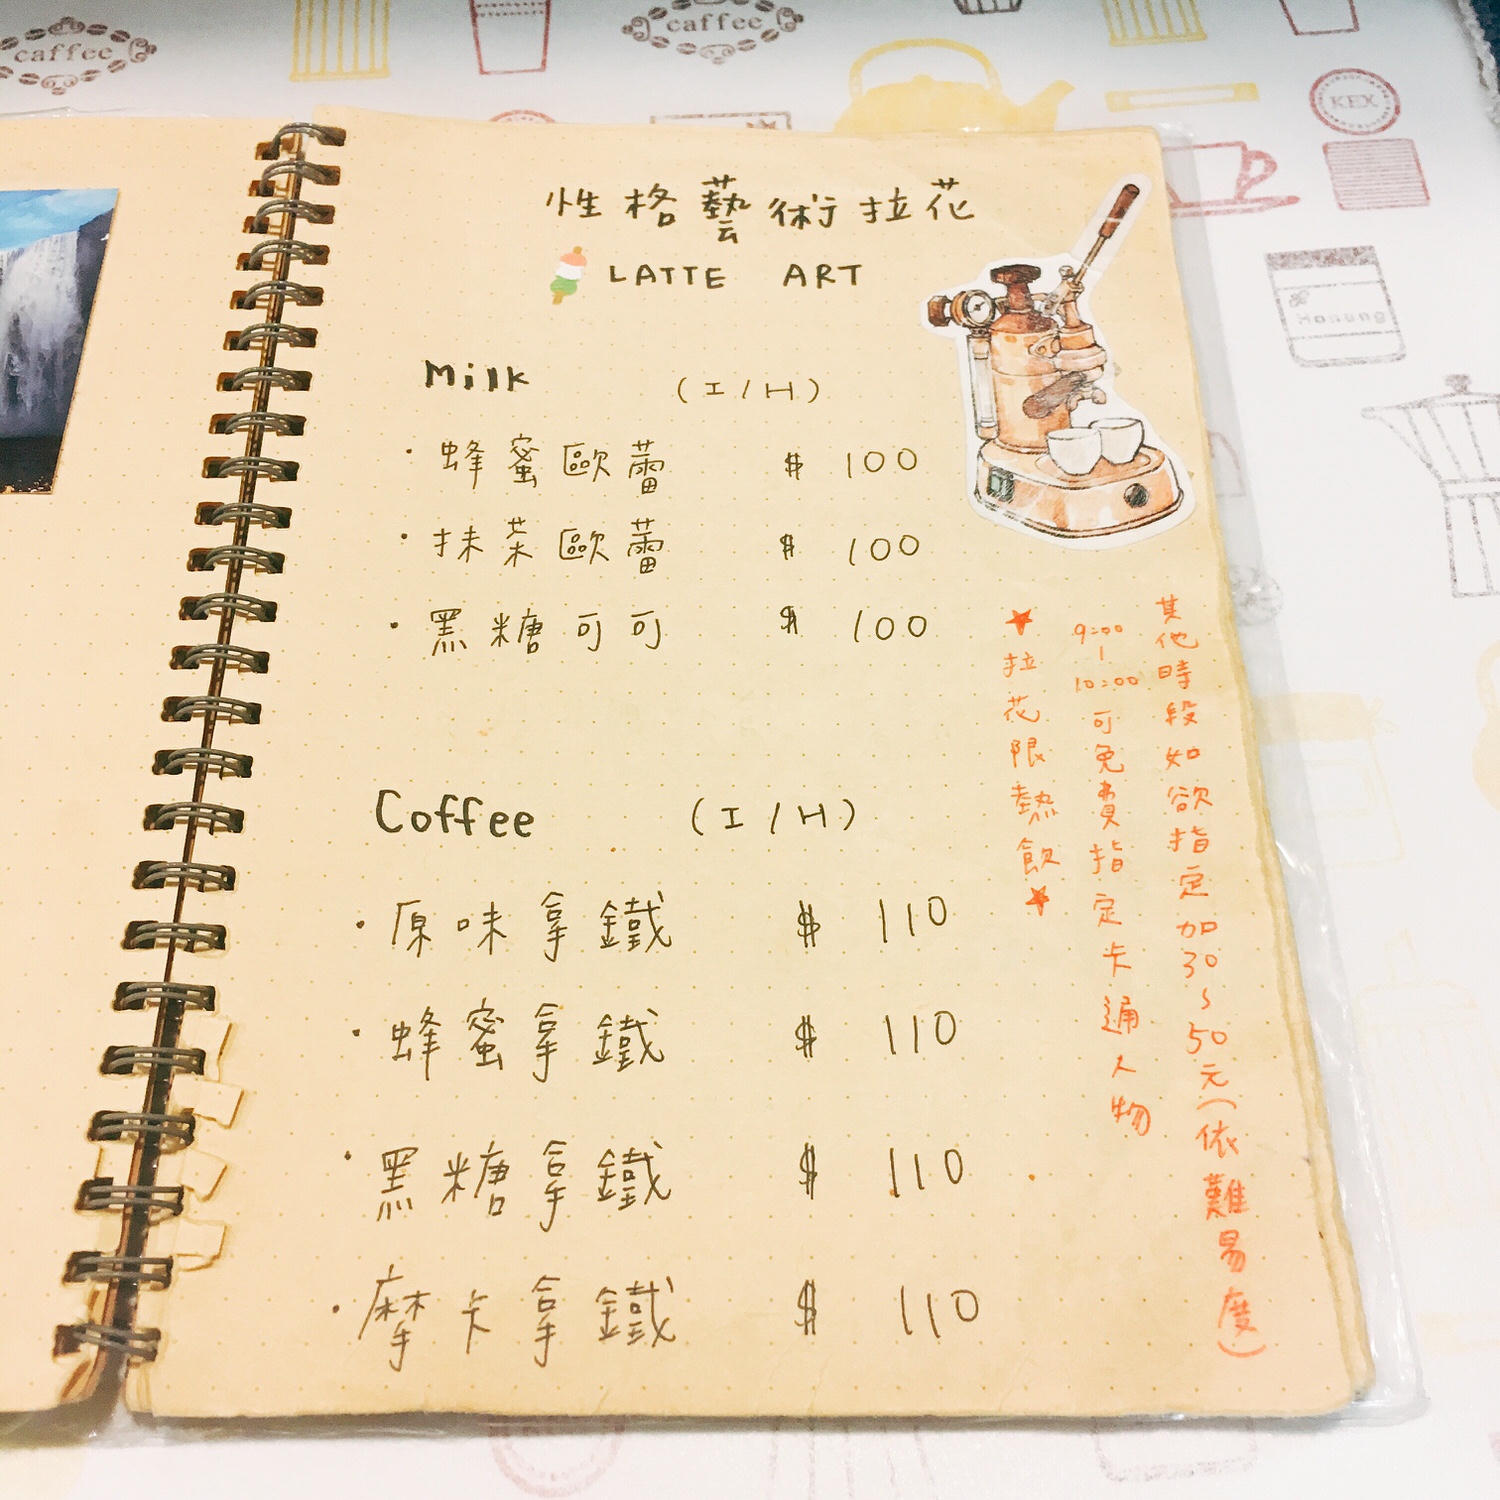 caffee
caffee
KEX
Hosung
性格藝術拉花
LATTE ART
Milk (I/H)
·蜂蜜歐蕾 $ 100
·抹茶歐蕾 $ 100
·黑糖可可 $ 100
Coffee (I/H)
·原味拿鐵 $ 110
·蜂蜜拿鐵 $ 110
·黑糖拿鐵 $ 110
·摩卡拿鐵 $ 110
★拉花限熱飲★
9:00-10:00可免費指定卡通人物
其他時段如欲指定加30~50元(依難易度)